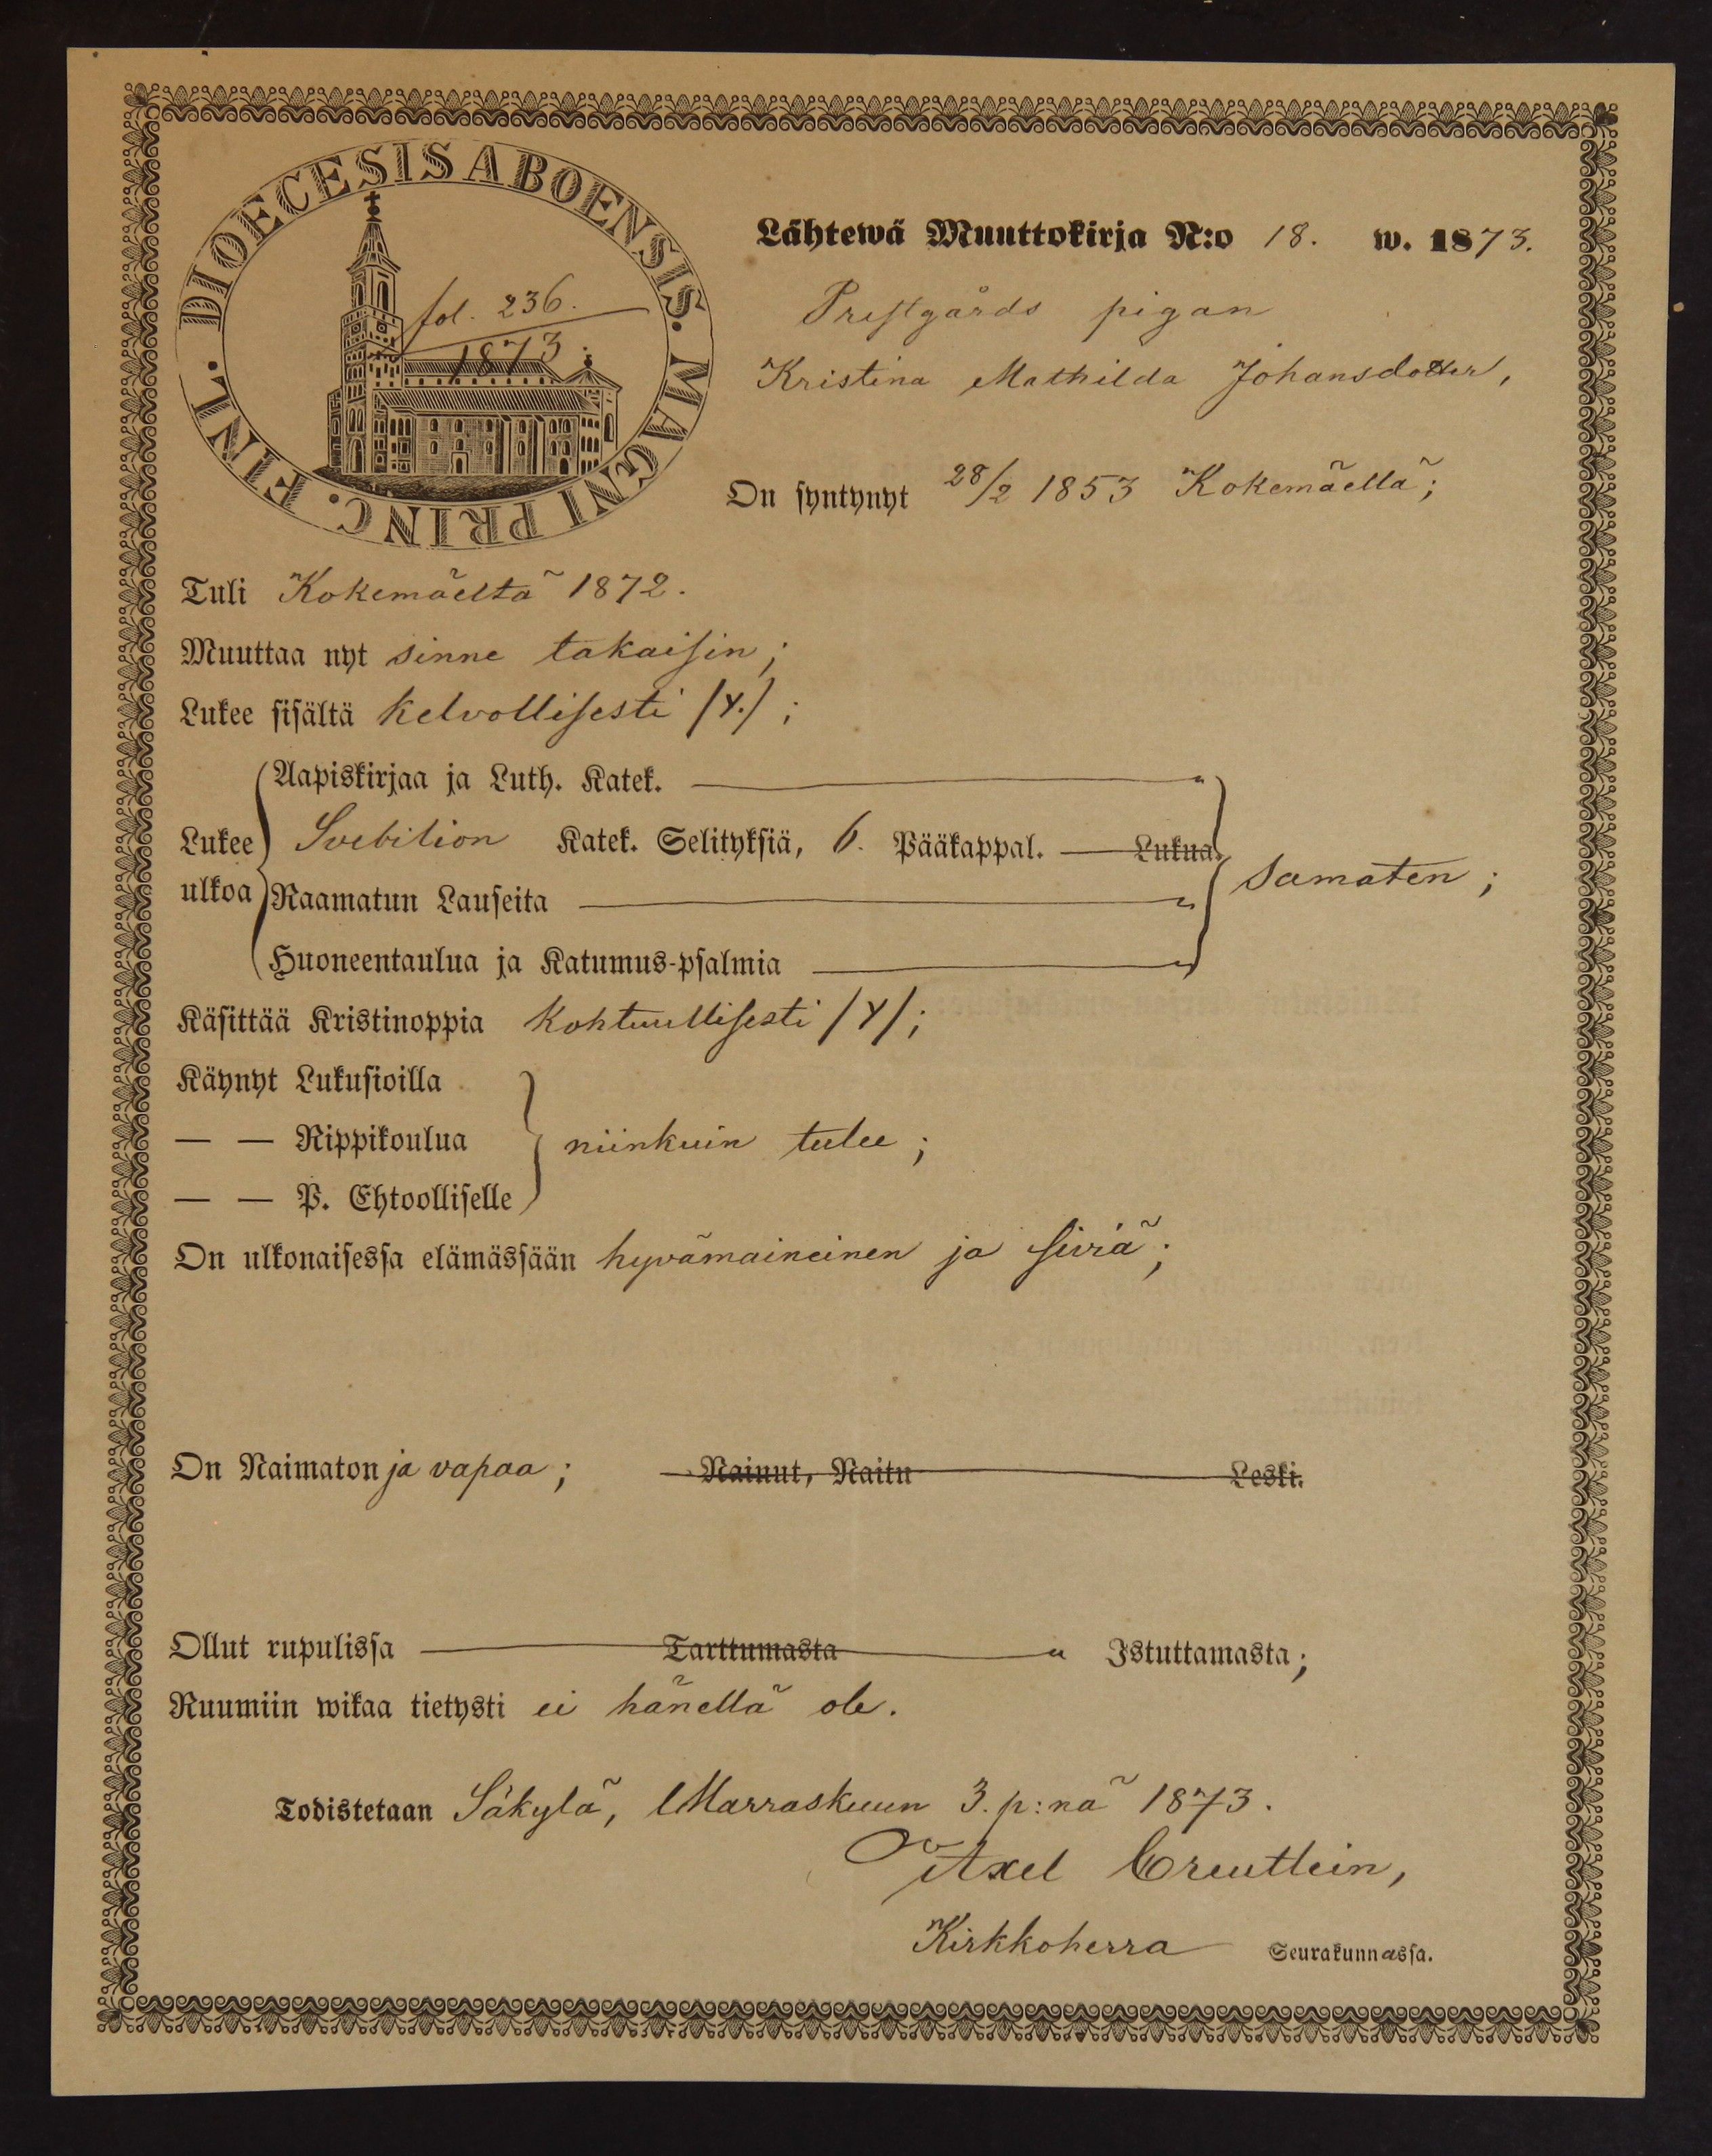 DIOECESIS ABOENSIS. MAGNI PRINC. FINL.
fol. 236.
1873.
Lähtewä Muuttokirja N:o 18. w. 1873.
Prestgårds pigan
Kristina Mathilda Johansdotter,
On syntynyt 28/2 1853 Kokemäellä;
Tuli Kokemäeltä 1872.
Muuttaa nyt sinne takaisin;
Lukee sisältä kelvollisesti /Y./;
Aapiskirjaa ja Luth. Katek. —
Lukee ulkoa
Svebilion Katek. Selityksiä, 6. Pääkappal. — Lukua.
Raamatun Lauseita —
samaten;
Huoneentaulua ja Katumus-psalmia —
Käsittää Kristinoppia Kohtuullisesti /Y/;
Käynyt Lukusioilla
— — Rippikoulua niinkuin tulee;
— — P. Ehtoolliselle
On ulkonaisessa elämässään hyvämaineinen ja siviä;
On Naimaton ja vapaa; Nainut, Naitu Leski.
Ollut rupulissa — Tarttumasta — Istuttamasta;
Ruumiin wikaa tietysti ei hänellä ole.
Todistetaan Säkylä, Marraskuun 3. p:nä 1873.
Axel Creutlein,
Kirkkoherra Seurakunnassa.